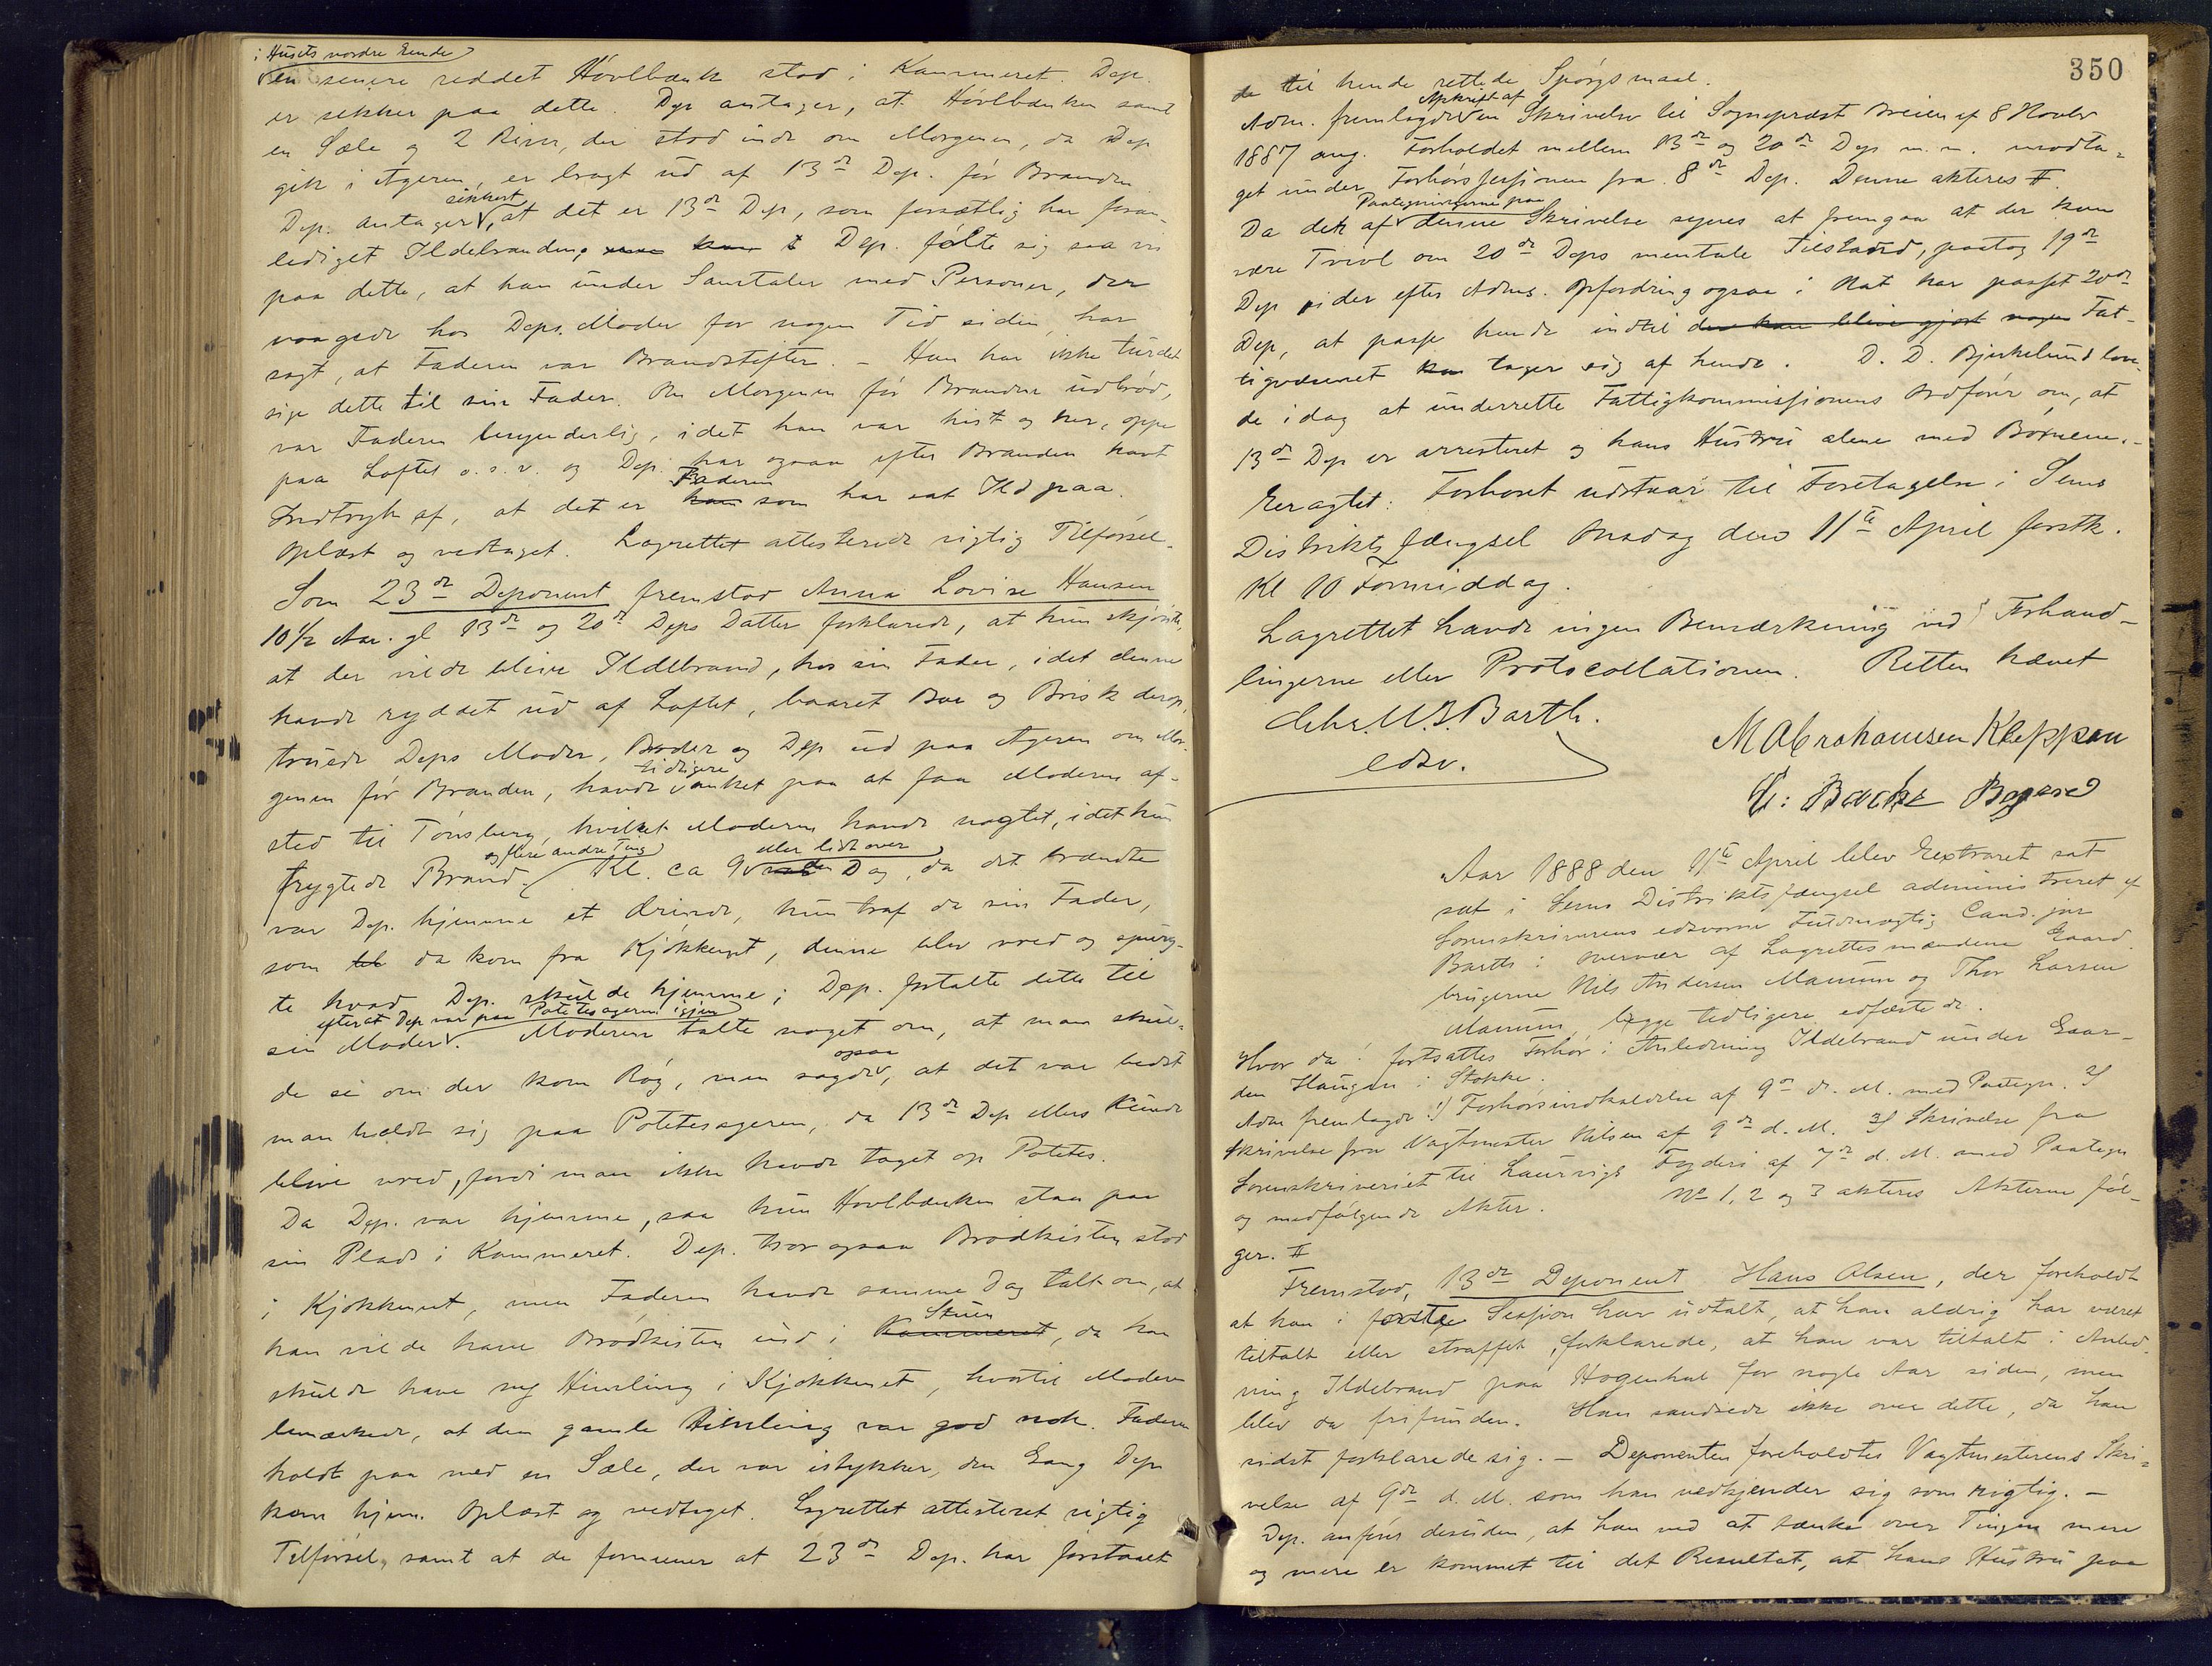 i Husets nordre Ende
en senere reddet Hövlbænk stod i Kammeret. Dep.
er sikker paa dette. Dep antager, at Hövlbænken samt
en Sæle og 2 River, der stod inde om Morgenen, da Dep
gik i Ageren, er bragt ud af 13de Dep. för Branden
sikkert
Dep. antager, at det er 13de Dep, som forsætlig har foran-
lediget Ildebranden; Dep. fölte sig saa vis
paa dette, at han under Samtaler med Personer, der
vaagede hos Deps. Moder for nogen Tid siden, har
sagt, at Faderen var Brandstifter. – Han har ikke turdet
sige dette til sin Fader. Om Morgenen för Branden udbröd,
var Faderen besynderlig, idet han var hist og her, oppe
paa Loftet o. s. v. og Dep. har ogsaa efter Branden havt
Faderen
Indtryk af, at det er han som har sat Ild paa.
Oplæst og vedtaget. Lagrettet attesterede rigtig Tilförsel.
Som 23de Deponent fremstod Anna Lovise Hansen
10 1/2 Aar gl 13de og 20de Deps Datter forklarede, at hun skjönte,
at der vilde blive Ildebrand, hos sin Fader, idet denne
havde ryddet ud af Loftet, baaret Bar og Brisk derop,
truede Deps Moder, Broder og Dep ud paa Ageren om Mor-
tidligere
genen för Branden, havde ønket paa at faa Moderen af-
sted til Tönsberg, hvilket Moderen havde nægtet, idet hun
og flere andre Ting eller lidt over
frygtede Brand. Kl. ca 9 Dag, da det brændte
var Dep. hjemme et Ærinde, hun traf da sin Fader,
som da kom fra Kjökkenet, denne blev vred og spurg-
te hvad Dep. skulde hjemme; Dep. fortalte dette til
efterat Dep var paa Potetesageren igjen
sin Moder. Moderen talte noget om, at man skul-
ogsaa
de se om der kom Rög, men sagde, at det var bedst
man holdt sig paa Potetesageren, da 13de Dep ellers kunde
blive vred, fordi man ikke havde taget op Potetes.
Da Dep. var hjemme, saa hun Hovlbænken staa paa
sin Plads i Kammeret. Dep. tror ogsaa Brödkisten stod
i Kjökkenet, men Faderen havde samme Dag talt om, at
Stuen
han vilde have Brödkisten ind i Kammeret, da han
skulde have ny Himling i Kjøkkenet, hvortil Moderen
bemærkede, at den gamle Himling var god nok. Faderen
holdt paa med en Sæle, der var istykker, den Gang Dep
kom hjem. Oplæst og vedtaget. Lagrettet attesteret rigtig
Tilförsel, samt at de formener at 23de Dep. har forstaaet
350
de til hende rettede Spörgsmaal.
Afskrift af
Adm. fremlagde en Skrivelse til Sognepræst Breien af 8 Novbr
1887 ang. Forholdet mellem 13de og 20de Dep m. m. modta-
get under Forhörssessionen fra 8de Dep. Denne akteres #.
Paategningerne paa
Da det af denne Skrivelse synes at fremgaa at der kan
være Tvivl om 20de Deps mentale Tilstand, paatog 19de
Dep, der efter Adms. Opfordring ogsaa i Nat har passet 20de
Dep, at passe hende indtil den kan blive gjort nogen Fat-
tigvæsenet tager sig af hende. D. D. Bjerkelund love-
de idag at underrette Fattigkommissionens Ordförer om, at
13de Dep er arresteret og hans Hustru alene med Börnene.-
Eragtet: Forhöret udstaar til Foretagelse i Sems
Distriktsfængsel Onsdag den 11te April förstk.
Kl 10 Formiddag.
Lagrettet havde ingen Bemærkning ved Forhand-
lingerne eller Protocollationen. Retten hævet
Barth.
edsv.
M Abrahamsen Kleppan
Aar 1888 den 11te April blev Extraret sat
sat i Sems Distriktsfængsel administreret af
Sorenskriverens edsvorne Fuldmægtig Cand. jur
Barth i Overvær af Lagrettesmændene Gaard-
brugerne Nils Andersen Manum og Thor Larsen
Manum, begge tidligere edfæstede.
Hvor da: fortsattes Forhör i Anledning Ildebrand under Gaar-
den Haugen i Stokke.
Adm fremlagde 1) Forhörsindkaldelse af 9de d. M. med Paategn. 2)
Skrivelse fra Vagtmester Nilsen af 9de d. M. 3) Skrivelse fra
Sorenskriveriet til Laurvigs Fogderi af 7de d. M. med Paategn
og medfölgende Akter. No 1, 2 og 3 akteres Akterne föl-
ger. #
Fremstod, 13de Deponent Hans Olsen, der foreholdt
at han i forste Session har udtalt, at han aldrig har været
tiltalt eller straffet, forklarede, at han var tiltalt i Anled-
ning Ildebrand paa Hogenhal for nogle Aar siden, men
blev da frifunden. Han sandsede ikke over dette, da han
sidst forklarede sig. – Deponenten foreholdtes Vagtmesterens Skri-
velse af 9de d. M. som han vedkjender sig som rigtig. –
Dep. anförer desuden, at han ved at tænke over Tingen mere
og mere er kommet til det Resultat, at hans Hustru paa